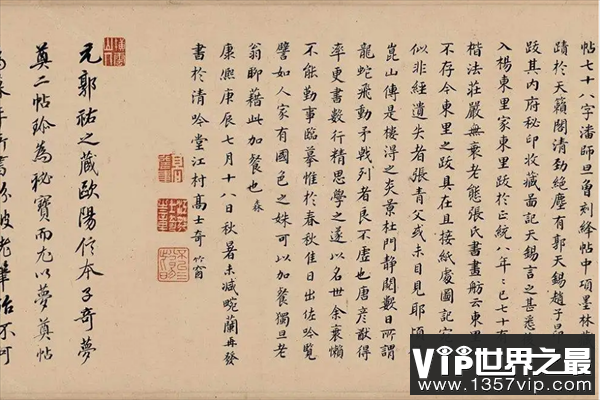 帖七十八字潘師旦曾刻絳帖中項墨林
蹟於天籟閣清勁絕塵有郭天錫趙子昂
跋其內府秘印收藏圖記天錫言之甚悉
入楊東里家東里跋於正統八年已七十
楷法莊嚴無衰老態張氏書畫舫云東里
不存今東里之跋具在且接紙處圖記
似非經遺失者張青父或未目見耶頃
崑山傳是樓得之炎景杜門靜閱數日所謂
龍蛇飛動矛戟列者良不虛也唐彥猷得
率更書數行精思學之遂以名世余衰懶
不能勤事臨摹惟於春秋佳日出佐吟覽
譬如人家有國色之姝可以加餐獨旦老
翁聊藉此加餐也
康熙庚辰七月十八日秋暑未減畹蘭再發
書於清吟堂江村高士奇 竹窗
元郭祐之藏歐陽信本子奇夢
奠二帖珍為秘寶而尤以夢奠帖
VIP世界之最
www.1357vip.com